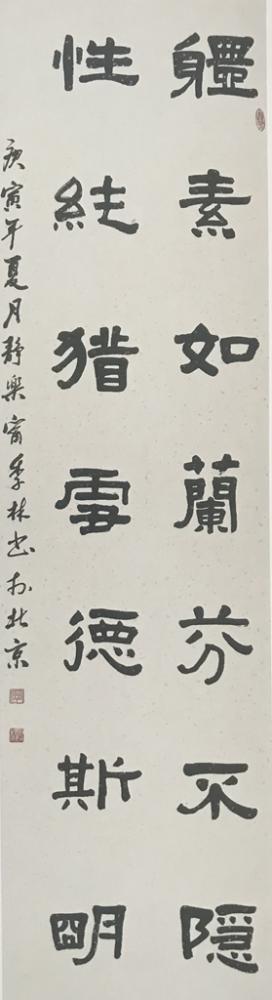 軆素如蘭芬不隱
性純猶雪德斯朙
庚寅年夏月靜樂甯季林书於北京